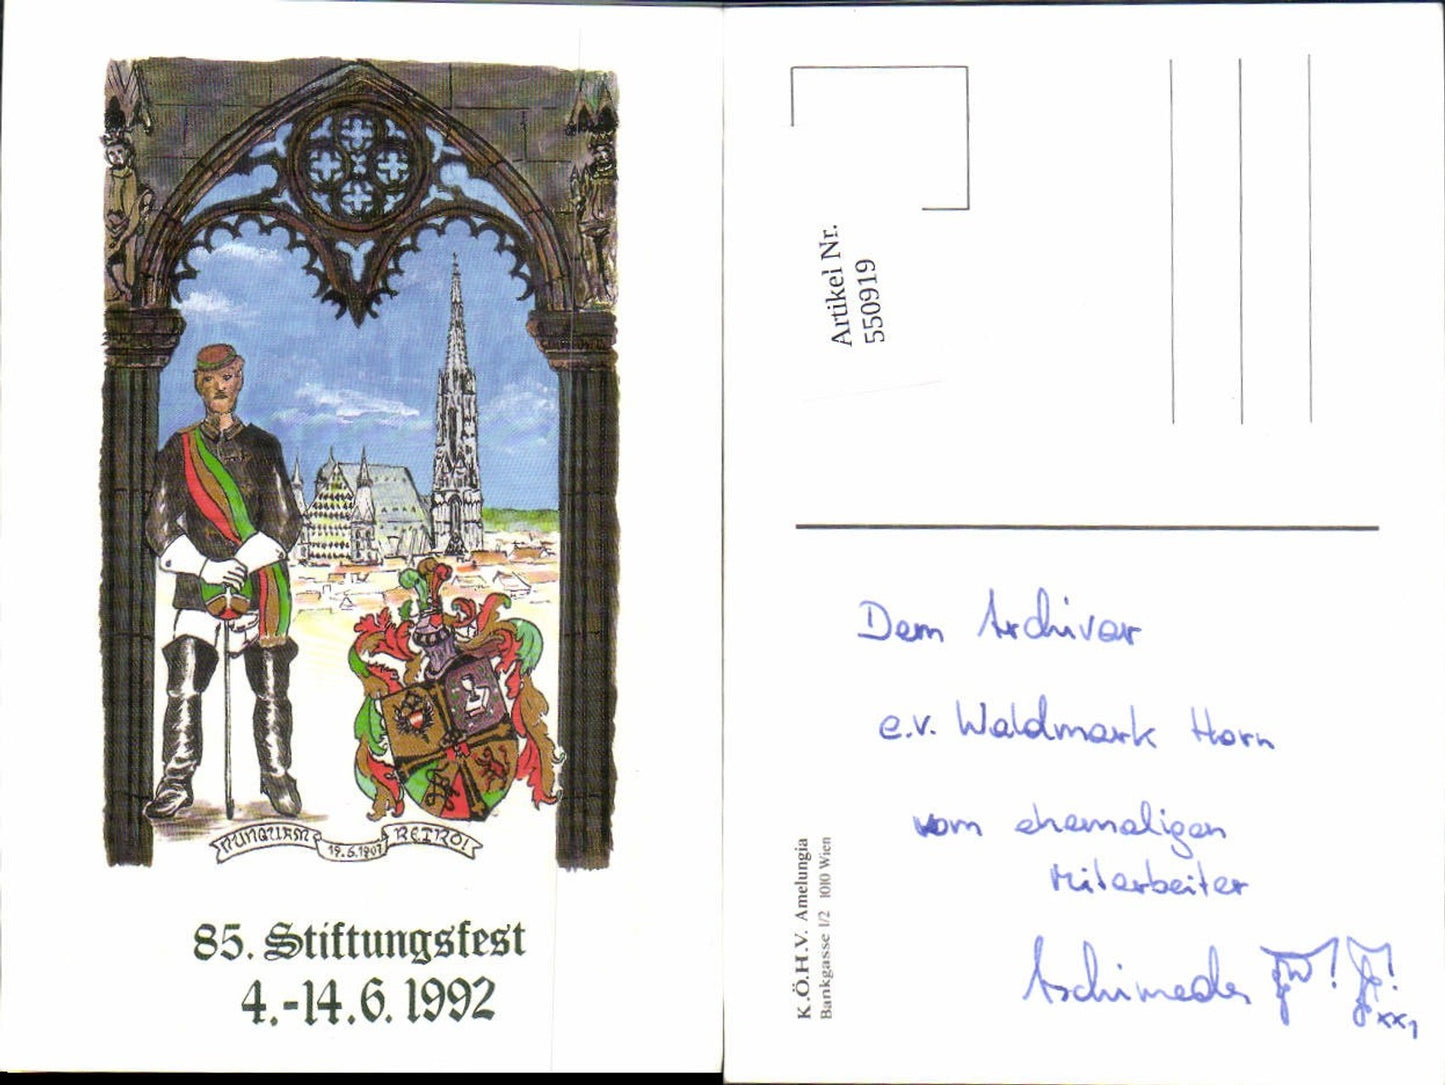 NUNQUAM RETRO!
19.6.1907
85. Stiftungsfest
4.-14.6.1992
Artikel Nr.
550919
K.Ö.H.V. Amelungia
Bankgasse 1/2 1010 Wien
Dem Archivar
e.v. Waldmark Horn
vom ehemaligen
Mitarbeiter
Archimedes
xx,